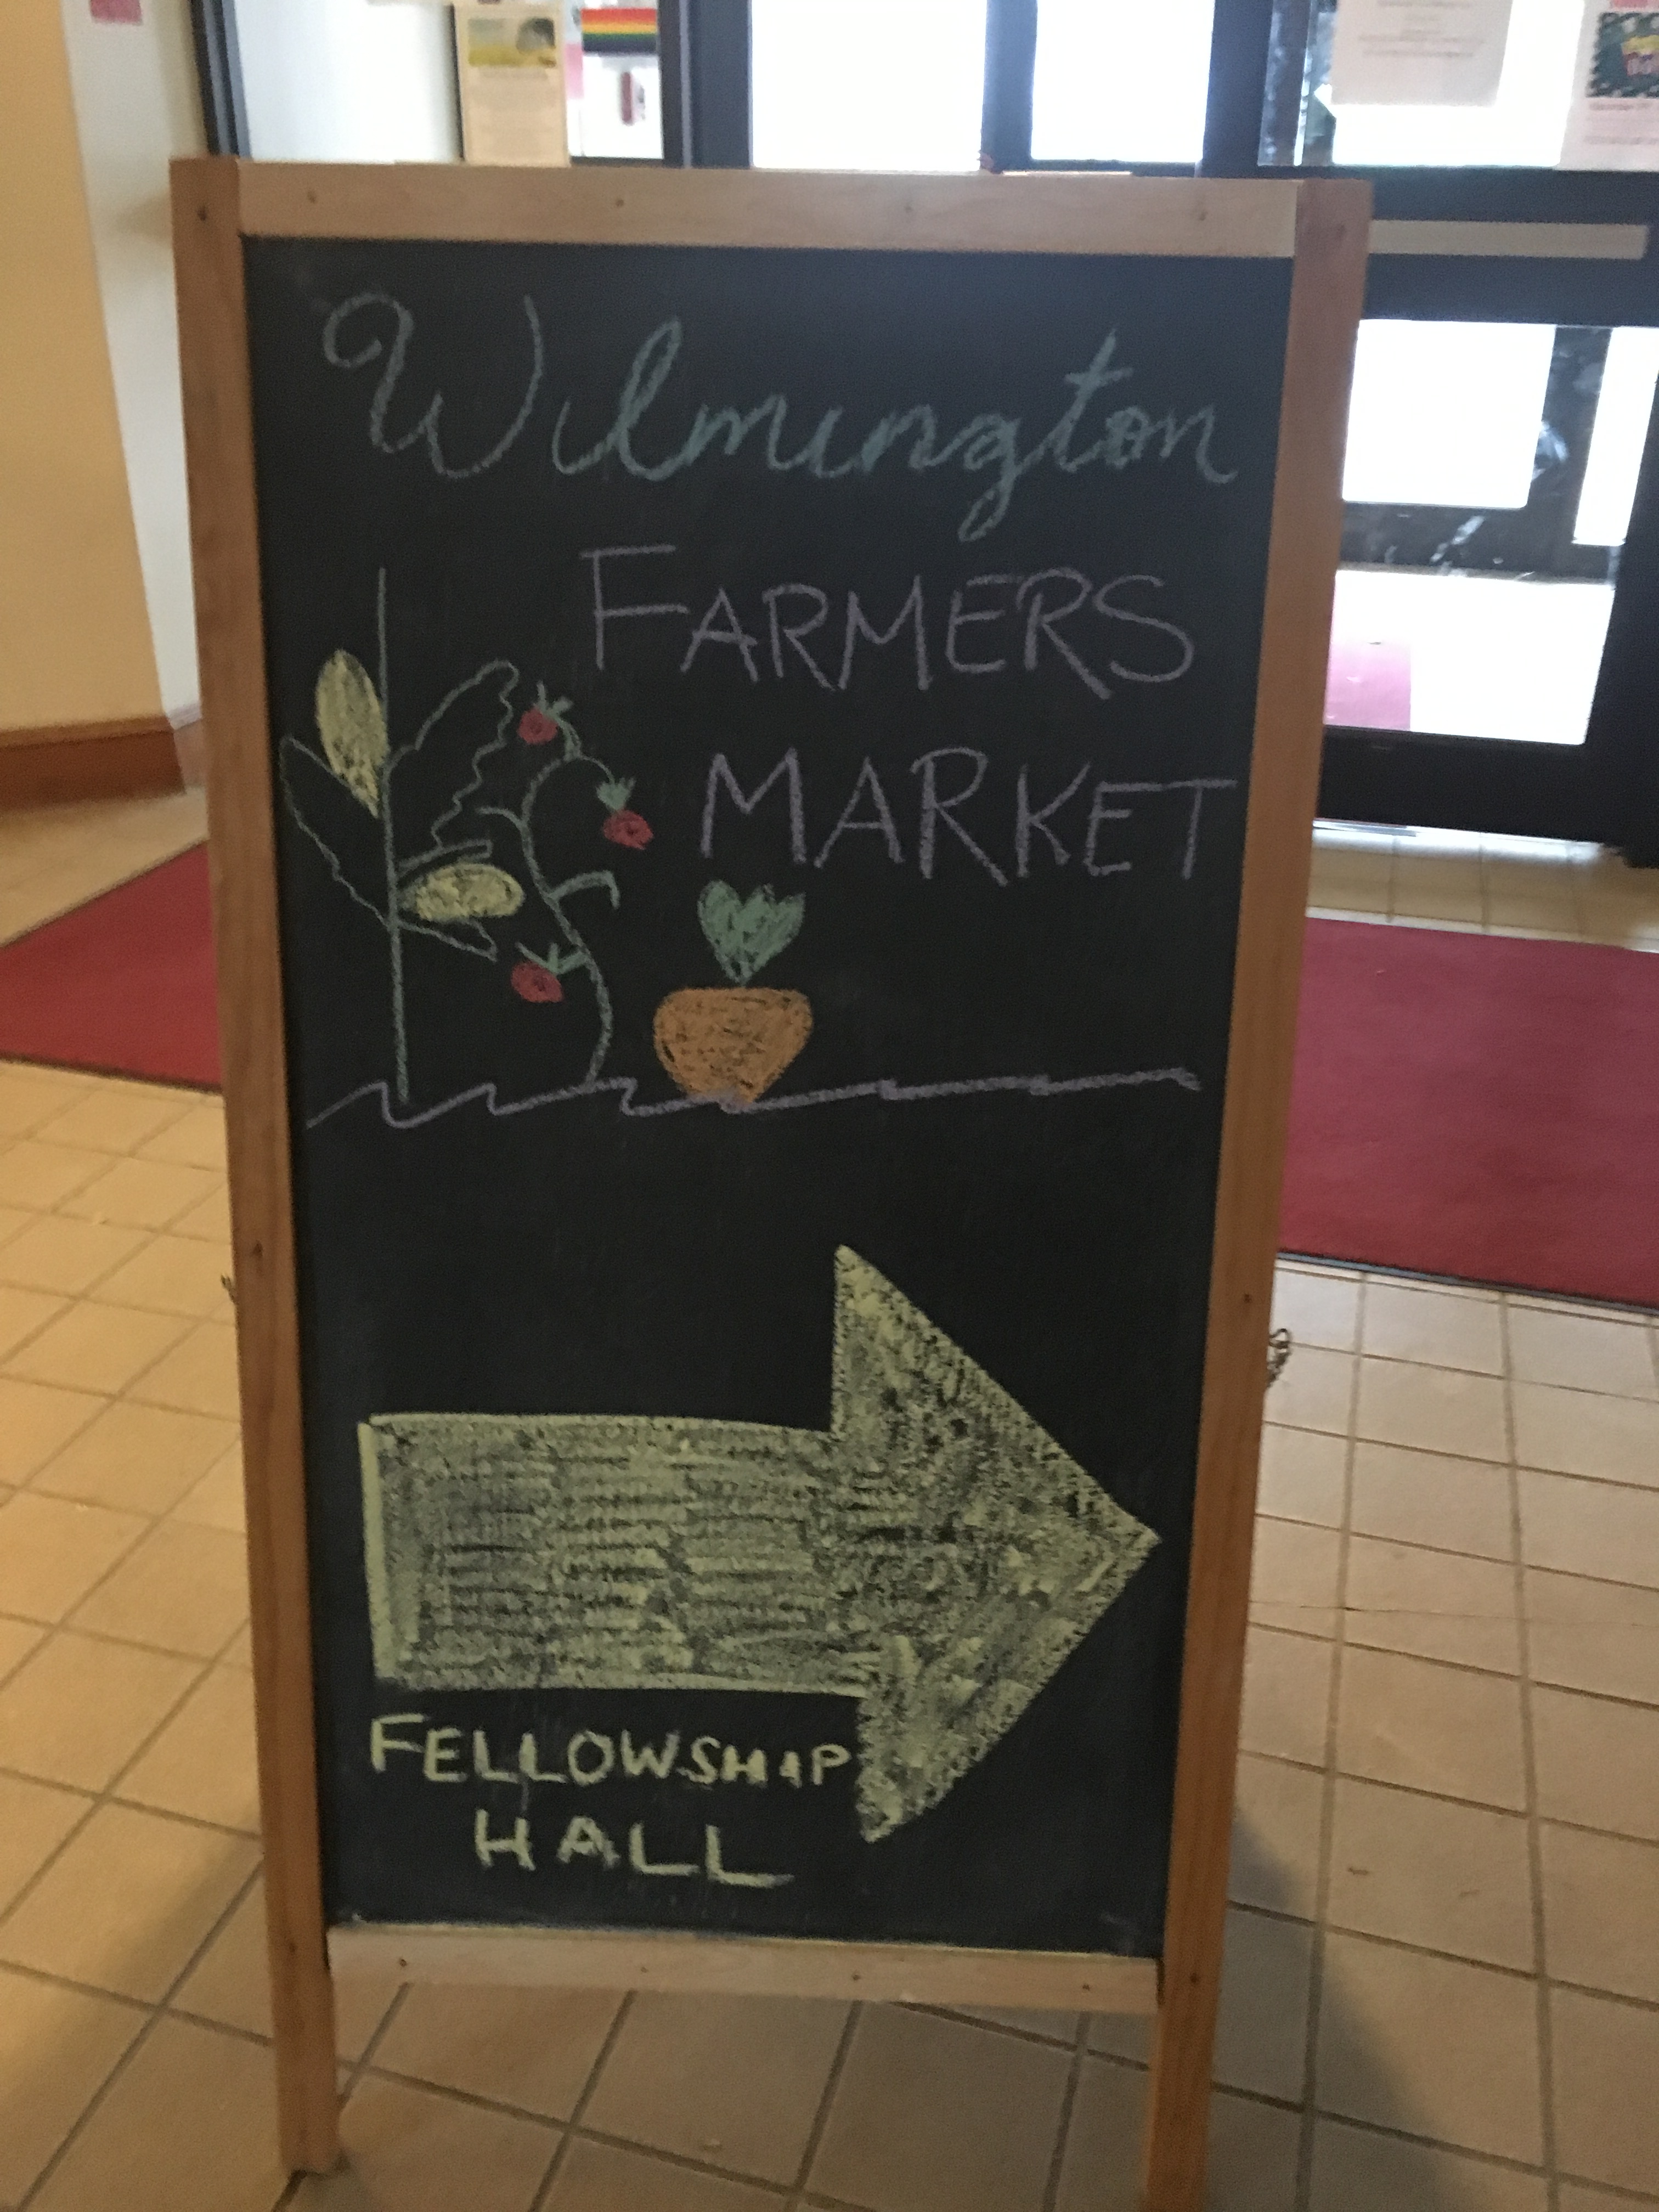 Wilmington
FARMERS
MARKET
FELLOWSHIP
HALL